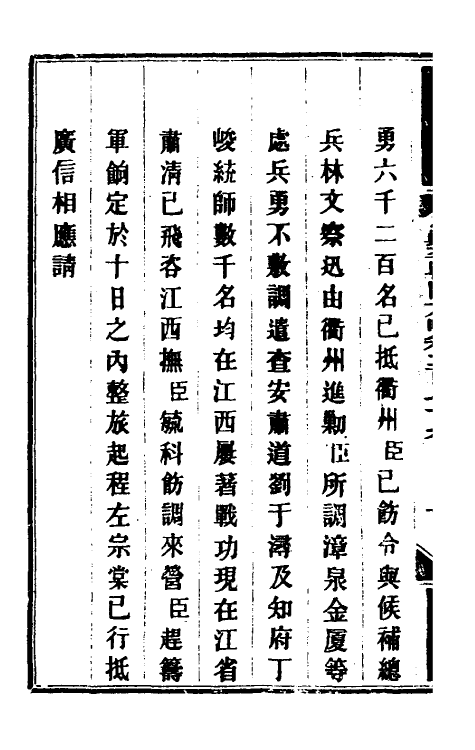 勇六千二百名已抵衢州臣已飭令與候補總
兵林文察迅由衢州進勦臣所調漳泉金厦等
處兵勇不敷調遣查安肅道劉于潯及知府丁
峻統師數千名均在江西屢著戰功現在江省
肅清已飛咨江西撫臣毓科飭調來營臣趕籌
軍餉定於十日之內整旅起程左宗棠已行抵
廣信相應請